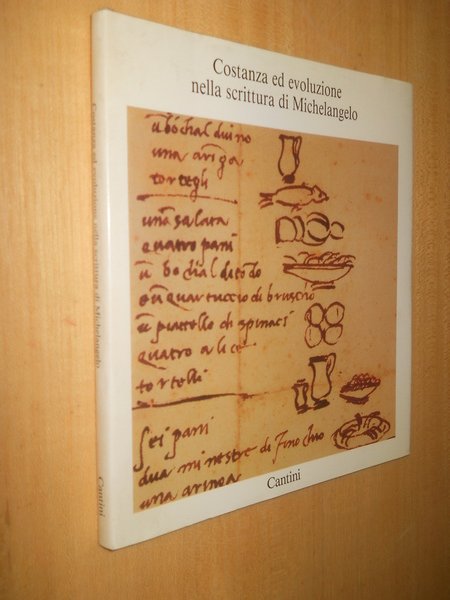 Costanza ed evoluzione
nella scrittura di Michelangelo
u͂ bochal di vino
una aringa
tortegli
una͂ salata
quatro pani
u͂ bochal di to͂do
e u͂ quartuccio di bruscho
u͂ piattello di spinaci
quatro alice
tortelli
sei pani
dua minestre di finochio
una aringa
Cantini
Costanza ed evoluzione nella scrittura di Michelangelo
Cantini